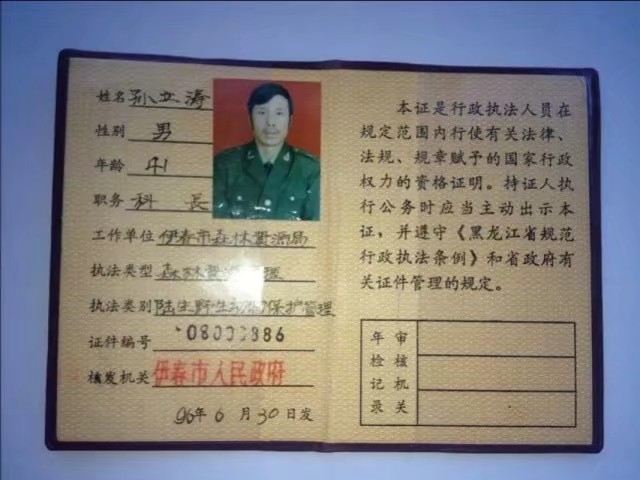 姓名 孙立涛
性别 男
年龄 41
职务 科 长
工作单位 伊春市森林资源局
执法类型 森林资源管理
执法类别 陆生野生动物保护管理
证件编号
核发机关 伊春市人民政府
96年6月30日发
本证是行政执法人员在
规定范围内行使有关法律、
法规、规章赋予的国家行政
权力的资格证明。持证人执
行公务时应当主动出示本
证，并遵守《黑龙江省规范
行政执法条例》和省政府有
关证件管理的规定。
年检记录
审核机关